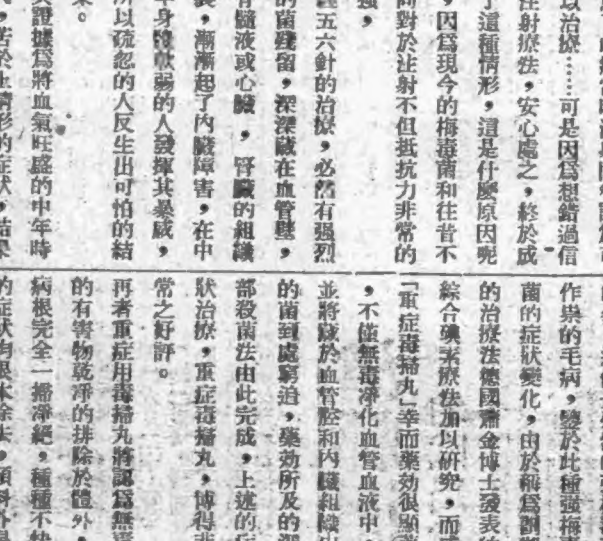 以治療……可是因爲想錯過信
注射療法，安心處之，終於成
了這種情形，這是什麼原因呢
，因爲現今的梅毒菌和往昔不
同對於注射不但抵抗力非常的
强，
五六針的治療，必然有强烈
的菌殘留，深深藏在血管壁，
骨髓液或心臟，腎臟的組織
漸漸起了內臟障害，在中
年身體軟弱的人發揮其暴威，
所以疏忽的人反生出可怕的結
果。
證據爲將血氣旺盛的中年時
，苦於上情形的症狀，結果
作祟的毛病，鑒於此種强梅毒
菌的症狀變化，由於稱爲
的治療法德國肅金博士發表
綜合碘素療法加以研究，而
「重症毒掃丸」幸而藥効很顯
，不僅無毒淨化血管血液中，
並將藏於血管腔和內臟組織
的菌到處窮追，藥効所及的
部殺菌法由此完成，上述的
狀治療，重症毒掃丸，博得非
常之好評。
再者重症用毒掃丸將認爲無
的有害物乾淨的排除於體外，
病根完全一掃淨絕，種種不快
的症狀均根本除去，